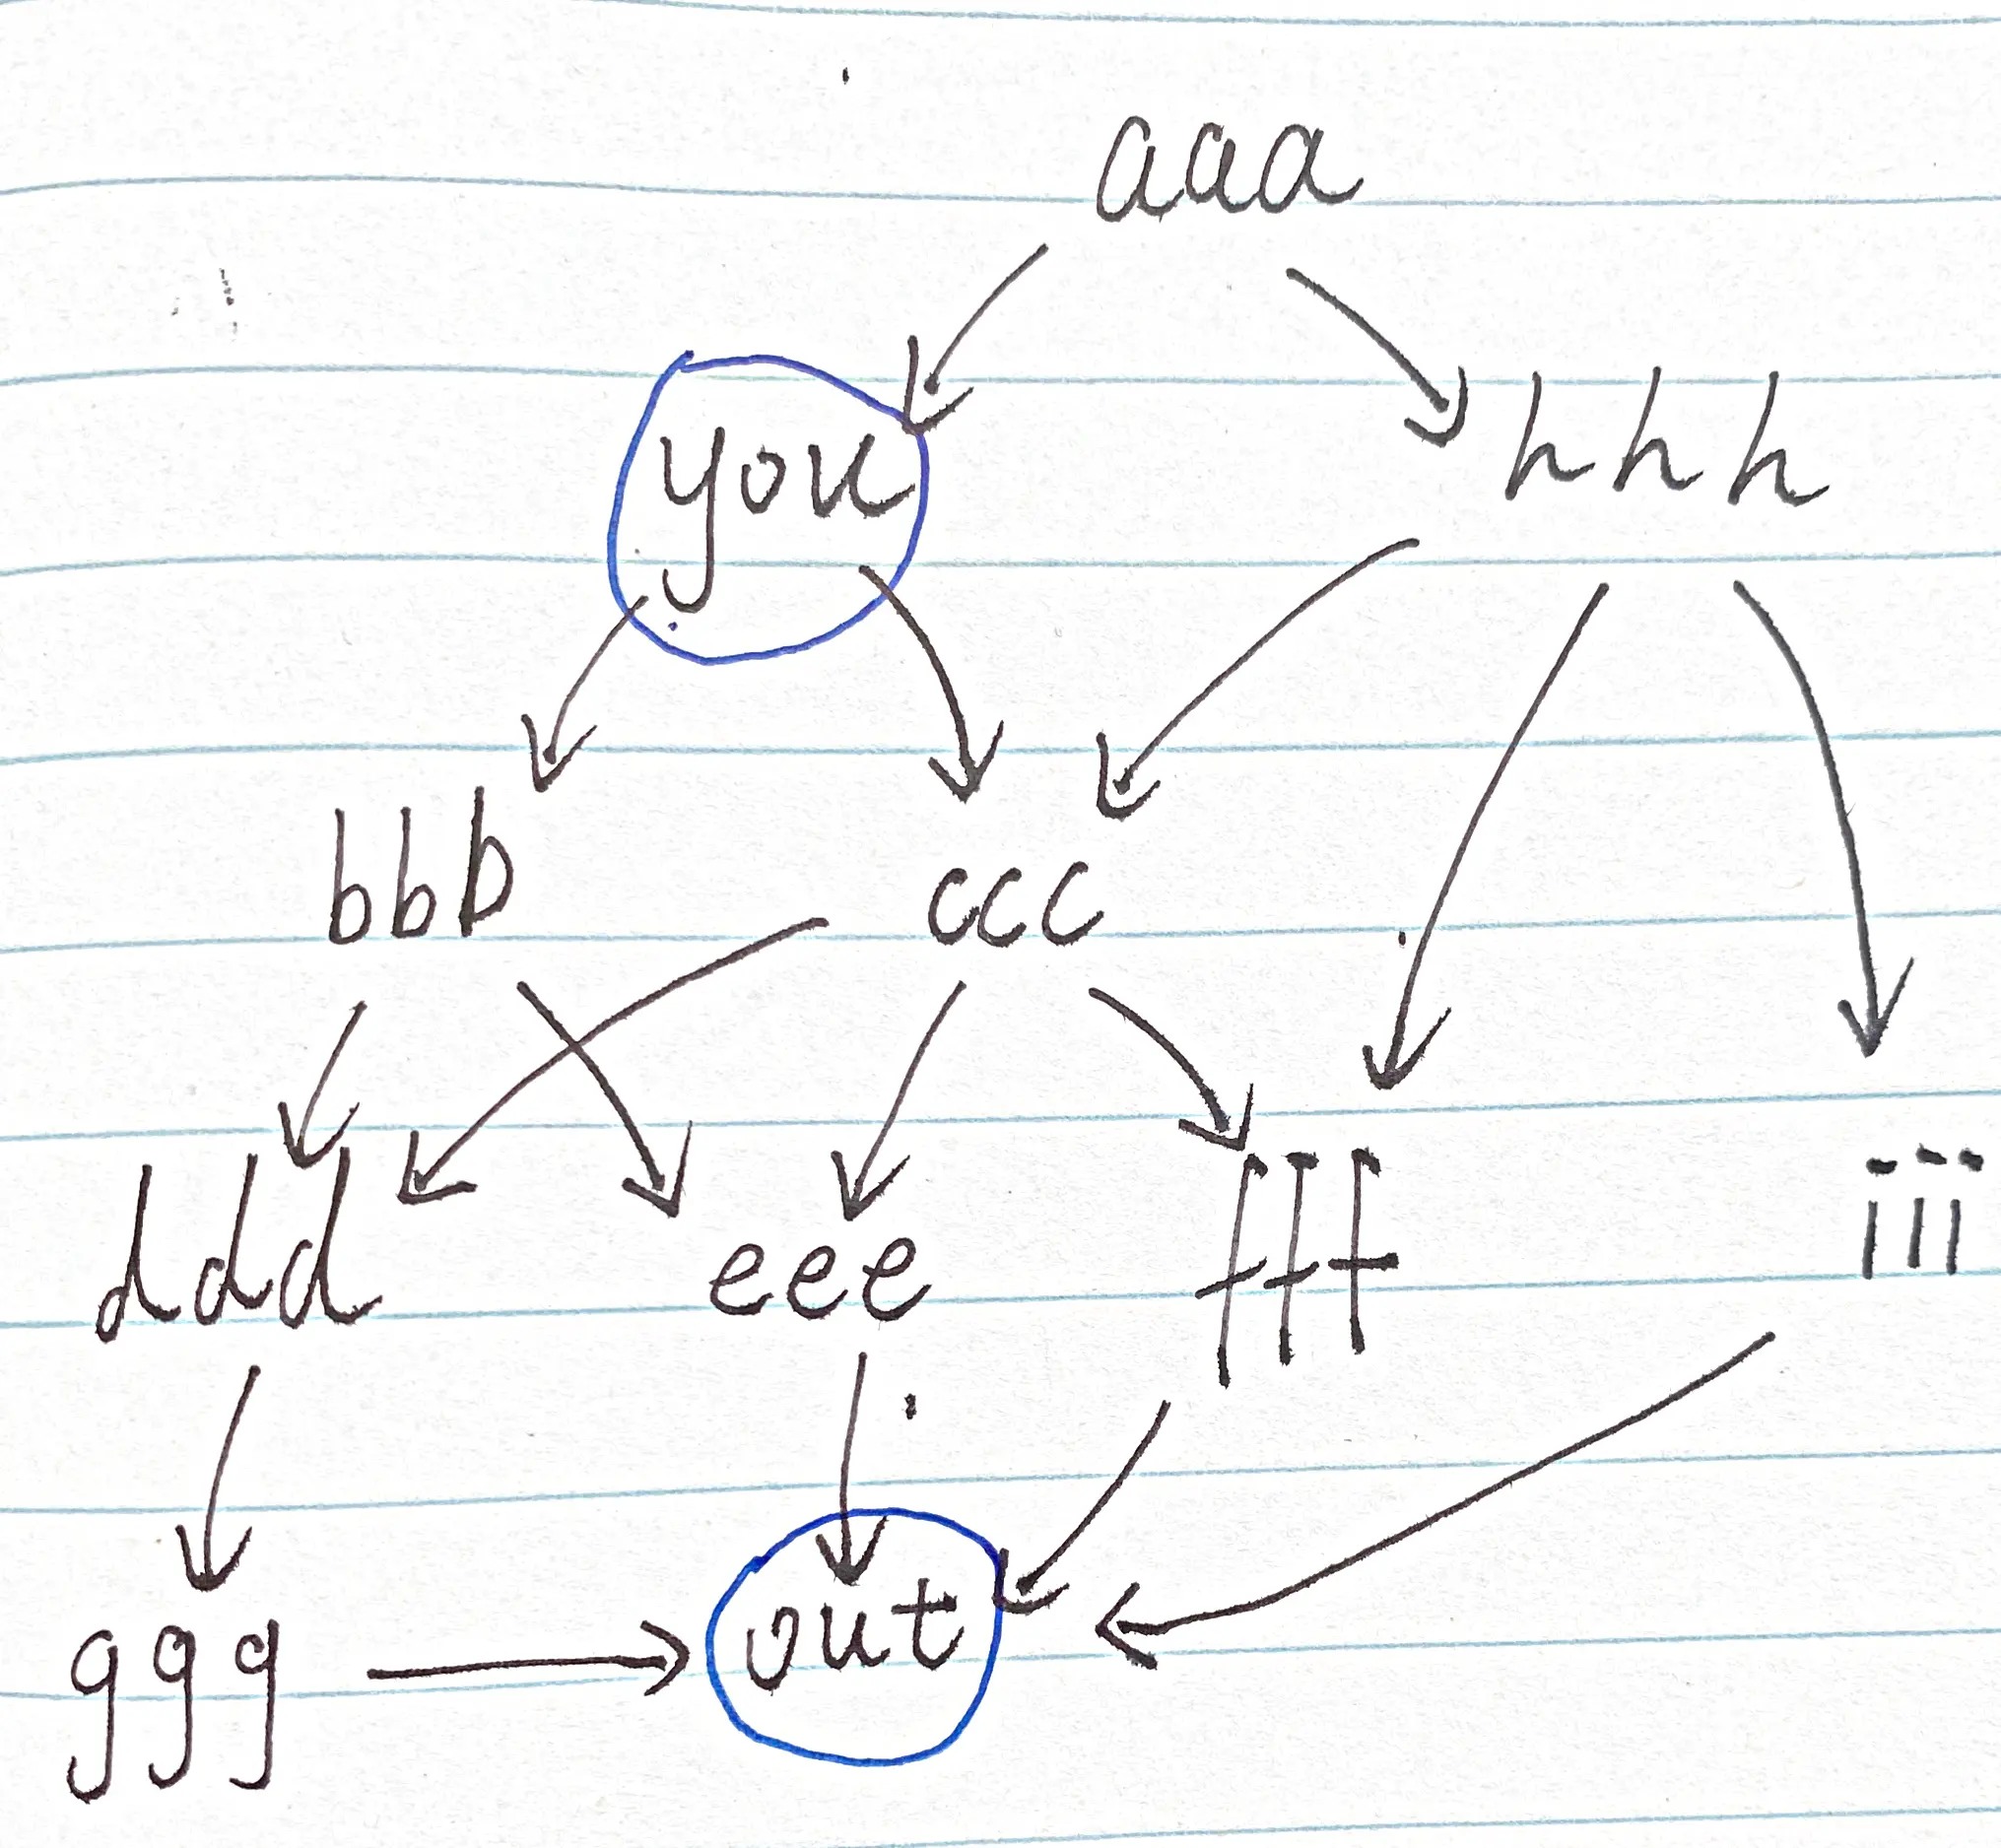 aaa
you hhh
bbb ccc
ddd eee fff iii
ggg out